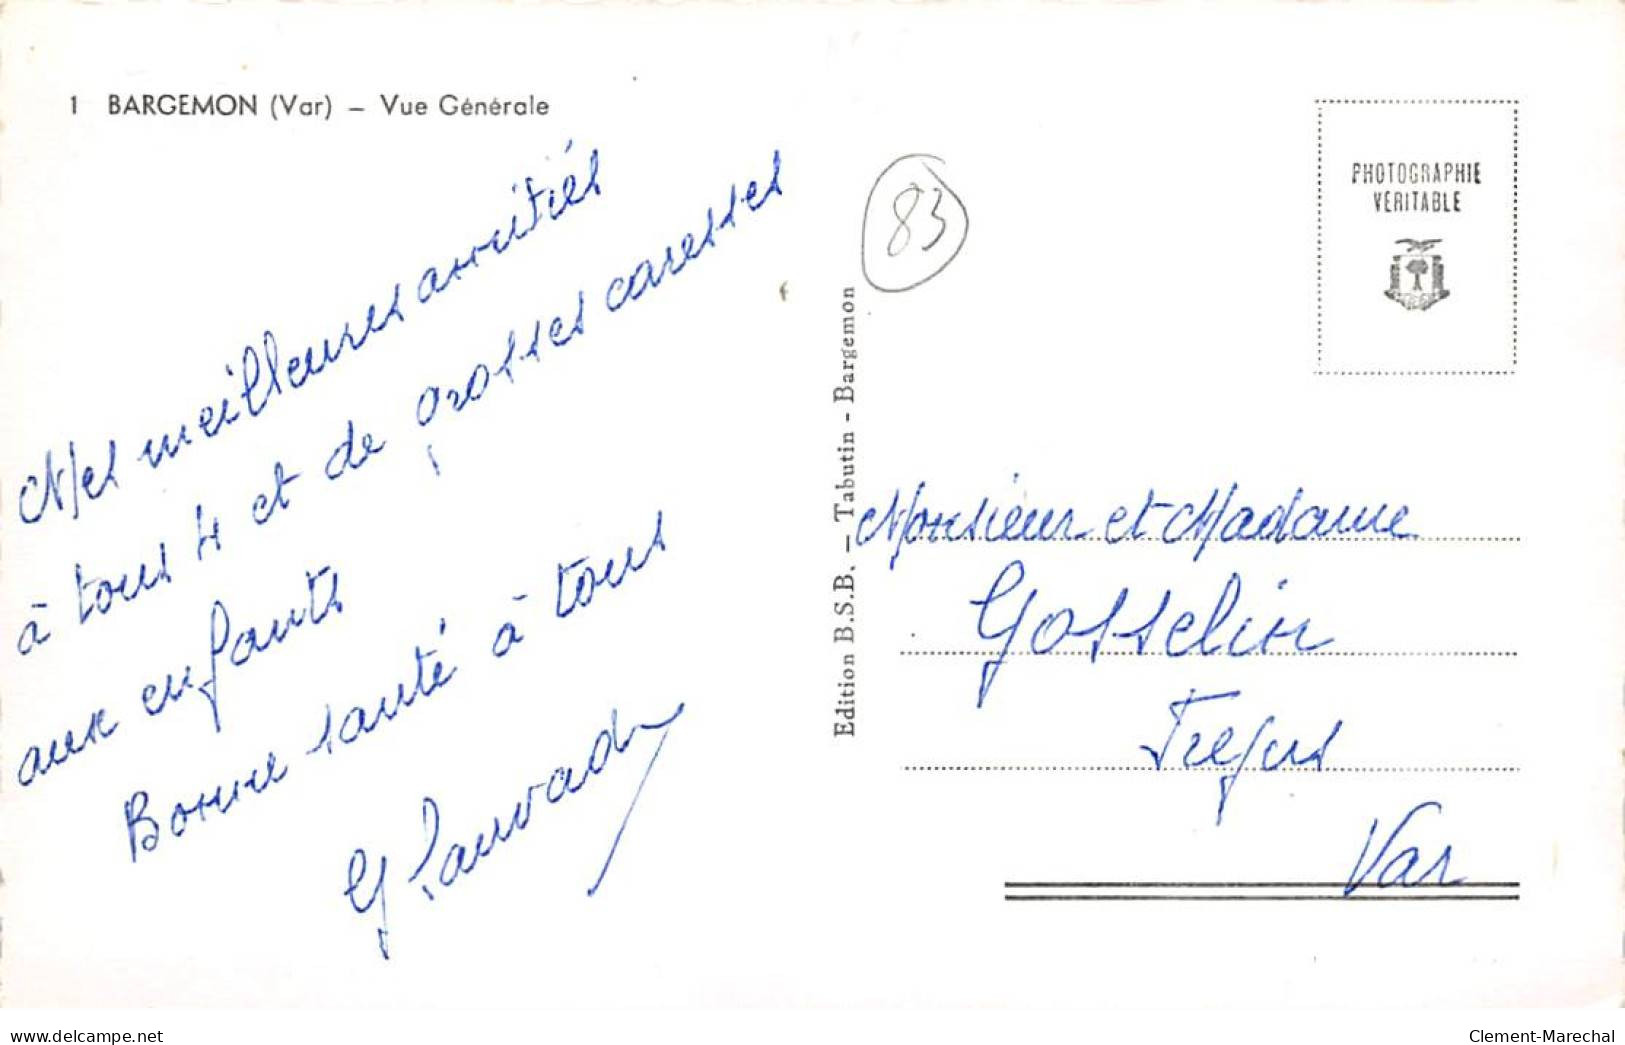 1 BARGEMON (Var) – Vue Générale
Mes meilleures amitiés
à tous 4 et de grosses caresses
aux enfants
Bonne santé à tous
83
Edition B.S.B. — Tabutin - Bargemon
PHOTOGRAPHIE
VÉRITABLE
Monsieur et Madame
Gosselin
Frejus
Var
www.delcampe.net
Clement-Marechal